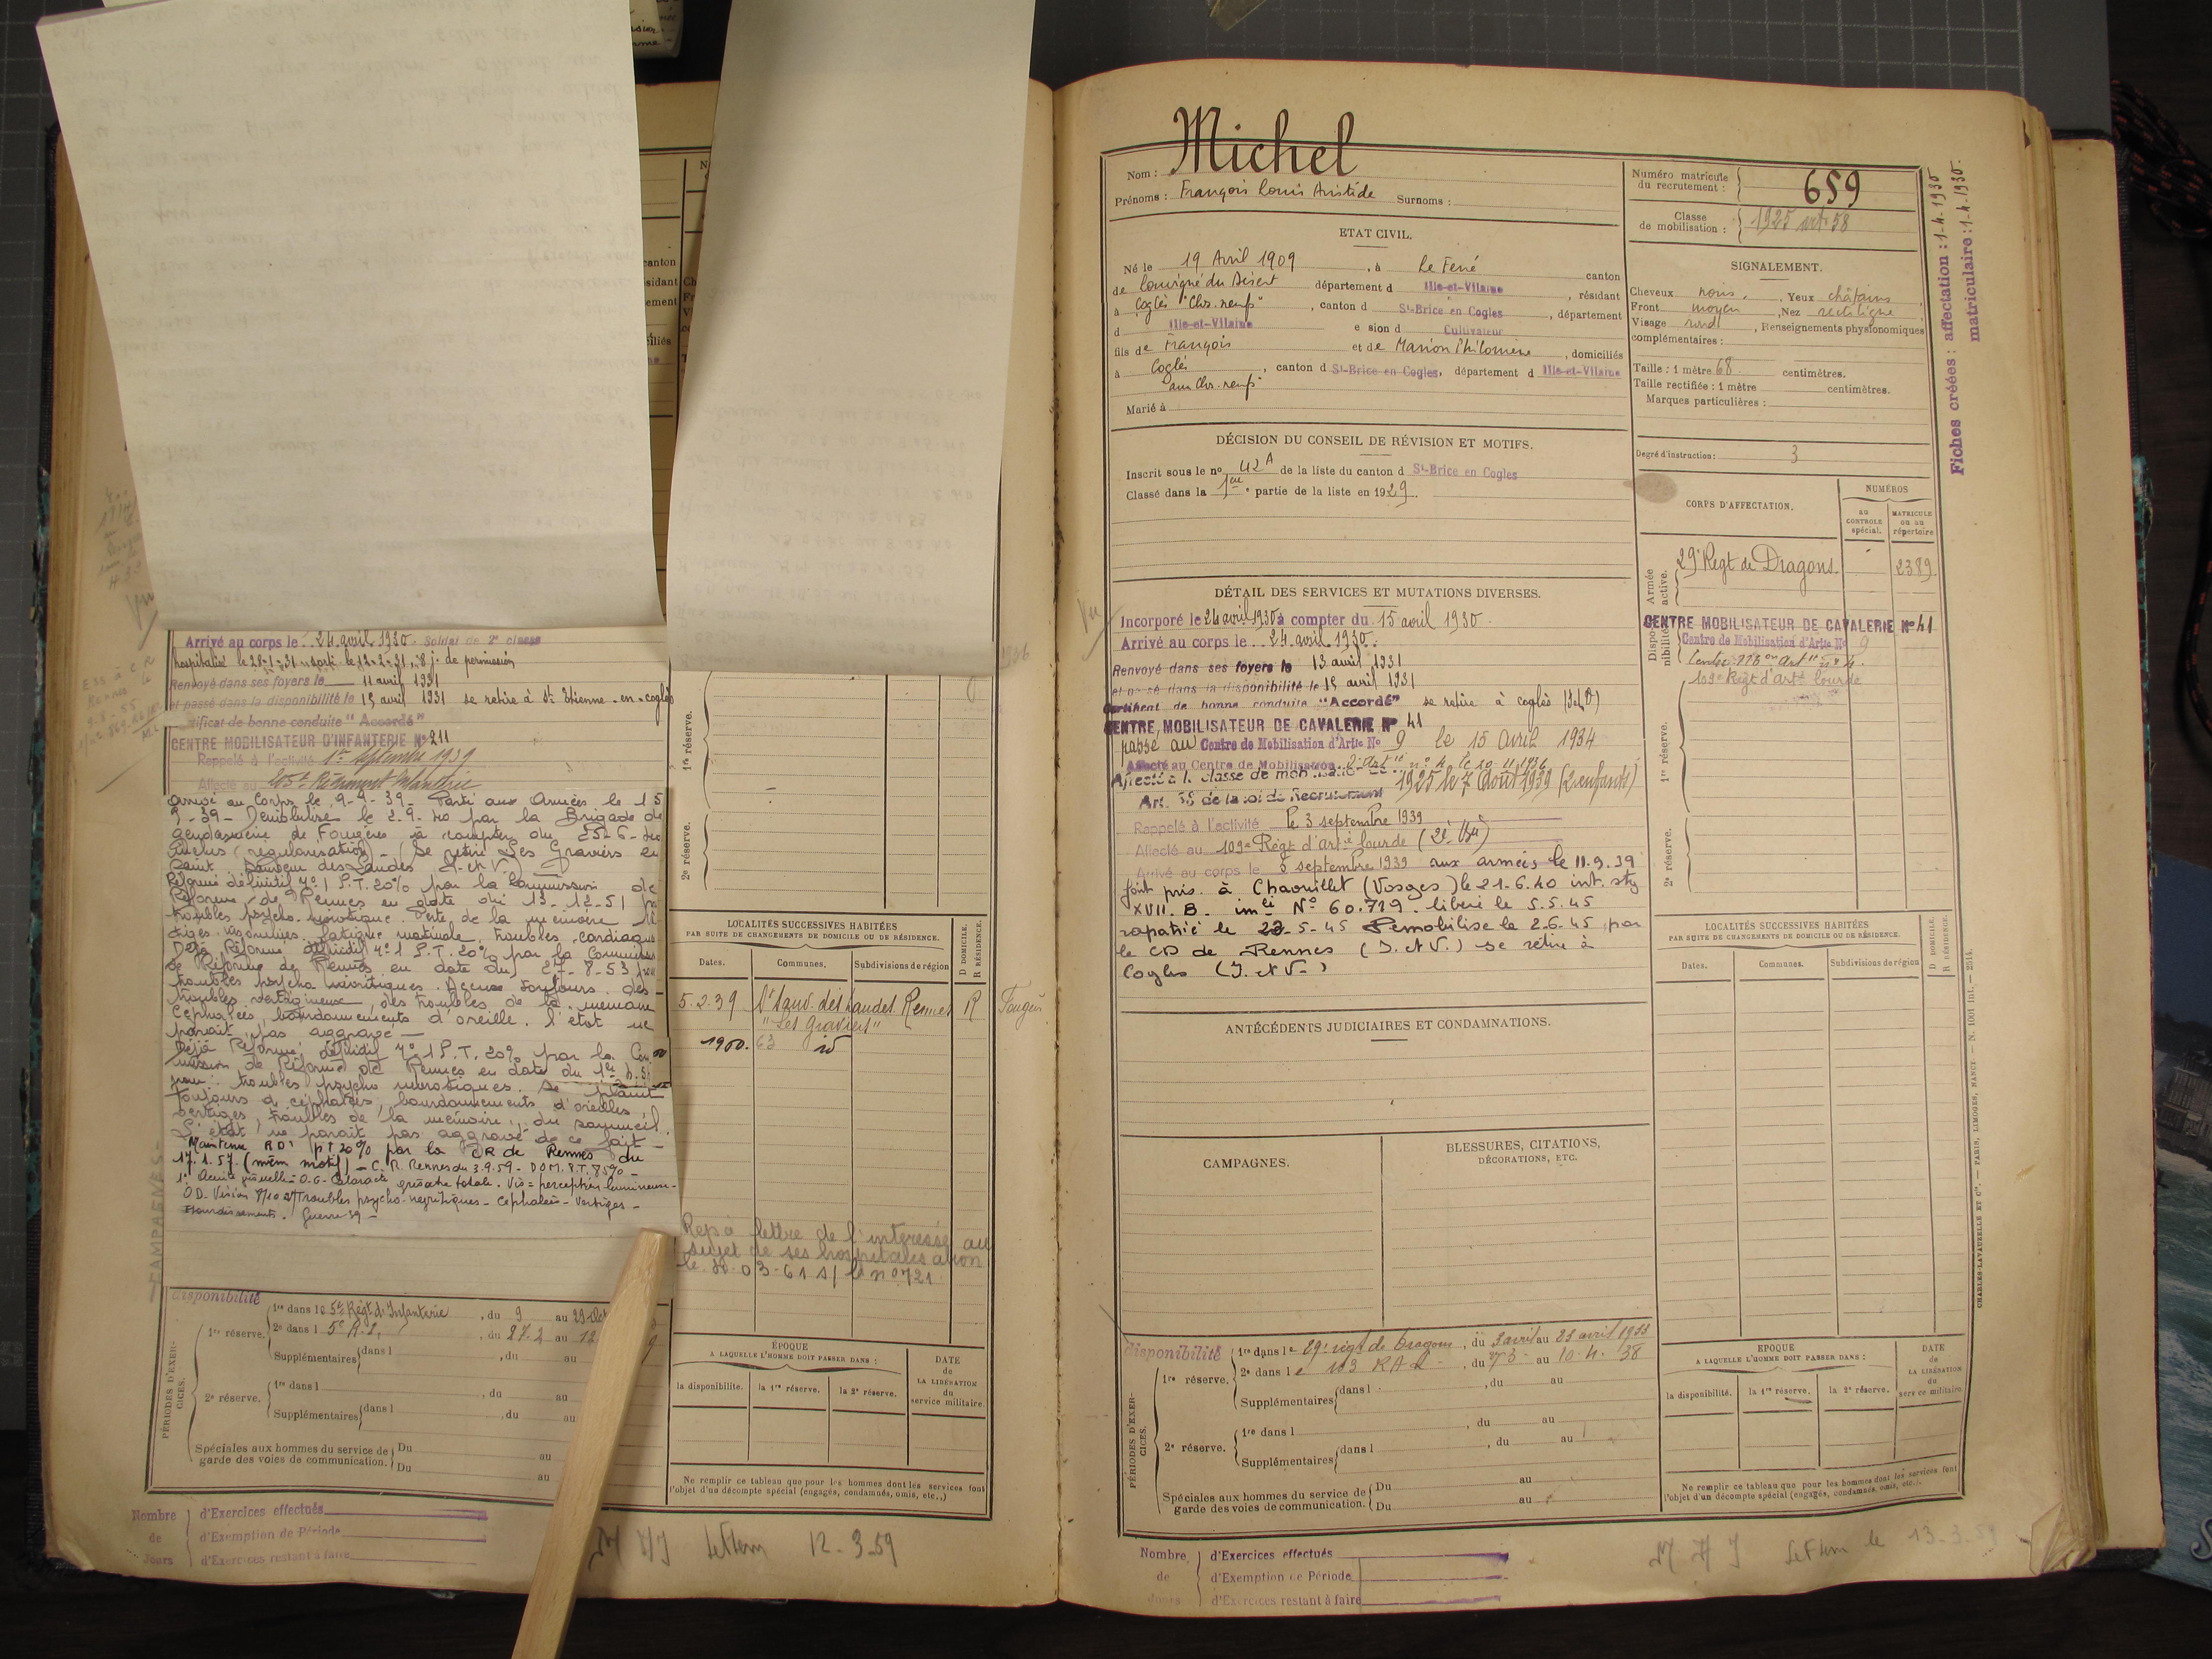 Arrivé au corps le 24 avril 1930 - Soldat de 2e classe
hospitalisé le 29-1-31 sorti le 12-2-31, 8 j. de permission
Renvoyé dans ses foyers le 11 avril 1931
et passé dans la disponibilité le 15 avril 1931 se retire à St Etienne-en-Coglès
Certificat de bonne conduite "Accordé"
CENTRE MOBILISATEUR D'INFANTERIE No 211
Rappelé à l'activité 1er septembre 1939
Affecté au Régiment Infanterie
Arrivé au Corps le 9-9-39 - Parti aux Armées le 15
9-39 - Démobilisé le 2-9-40 par la Brigade de
gendarmerie de Fougères à compter du 25-6-40
(régularisation) - Se retire Les Graviers en
Saint Sauveur des Landes (I. et V.)
Réformé définitif no 1 P.T. 20% par la Commission de
Réforme de Rennes en date du 13-12-51 pr
troubles psycho-névrotique. Perte de la mémoire
fatigue matinale, troubles cardiaques
Déjà Réformé définitif no 1 P.T. 20% par la Commission
de Réforme de Rennes en date du 27-8-53 pour
troubles psycho névrotiques. Accuse toujours des
troubles vertigineux, des troubles de la mémoire
céphalées, bourdonnements d'oreille. l'état ne
parait pas aggravé -
Déjà Réformé définitif no 1 P.T. 20% par la Com
mission de Réforme de Rennes en date du 1er
pour troubles psycho névrotiques. Se plaint
toujours de céphalées, bourdonnements d'oreilles,
vertiges, troubles de la mémoire, du sommeil.
L'état ne parait pas aggravé de ce fait -
Maintenu RD1 pt 20% par la CR de Rennes du
17.1.57 (même motif) - C.R. Rennes du 3.9.59 - P.T. 85% -
1° Acuité visuelle - O.G. Cataracte totale. Vis = perception lumineuse -
O.D. Vision Troubles psycho-névrotiques - Céphalées - Vertiges -
Etourdissements. Guerre 39 -
CAMPAGNES
disponibilité
PÉRIODES D'EXERCICES.
1re réserve. 1re dans le 5e Régt d'Infanterie, du 9 au 29
2e dans l 5e R.I., du 27.2 au 12
Supplémentaires dans l , du au
2e réserve. 1re dans l , du au
Supplémentaires dans l , du au
Spéciales aux hommes du service de garde des voies de communication. Du au
Du au
Nombre de Jours
d'Exercices effectués
d'Exemption de Période
d'Exercices restant à faire
1re réserve.
2e réserve.
LOCALITÉS SUCCESSIVES HABITÉES
PAR SUITE DE CHANGEMENTS DE DOMICILE OU DE RÉSIDENCE.
D DOMICILE. R RÉSIDENCE.
Dates. Communes. Subdivisions de région
5.2.39 St Sauv. des Landes Rennes R Fougères
"Les Graviers"
1950. 63 id
Rep à lettre de l'intéressé au
sujet de ses hospitalisation
le 03-61 s/ le no 721
ÉPOQUE
A LAQUELLE L'HOMME DOIT PASSER DANS :
la disponibilité. la 1re réserve. la 2e réserve.
DATE de LA LIBÉRATION du service militaire.
Ne remplir ce tableau que pour les hommes dont les services font
l'objet d'un décompte spécial (engagés, condamnés, omis, etc.,)
12-3-59
Nom : Michel
Prénoms : François Louis Aristide Surnoms :
Numéro matricule du recrutement : 659
Classe de mobilisation : 1925 art 58
ETAT CIVIL.
Né le 19 Avril 1909, à Le Ferré canton
de Louvigné du Désert département d Ille-et-Vilaine, résidant
à Coglès "Chs. neufs", canton d St-Brice en Cogles, département
d Ille-et-Vilaine e sion d Cultivateur
fils de François et de Marion Philomène, domiciliés
à Coglès, canton d St-Brice en Cogles, département d Ille-et-Vilaine
"aux Chs. neufs"
Marié à
SIGNALEMENT.
Cheveux noirs, Yeux châtains
Front moyen, Nez rectiligne
Visage rond, Renseignements physionomiques
complémentaires :
Taille : 1 mètre 68 centimètres.
Taille rectifiée : 1 mètre centimètres.
Marques particulières :
Degré d'instruction : 3
Fiches créées : affectation : 1-4-1930
matriculaire : 1-4-1930.
DÉCISION DU CONSEIL DE RÉVISION ET MOTIFS.
Inscrit sous le no 42 A de la liste du canton d St-Brice en Cogles
Classé dans la 1ère partie de la liste en 1929.
CORPS D'AFFECTATION. NUMÉROS
AU CONTROLE spécial. MATRICULE OU AU répertoire
Armée active. 29e Regt de Dragons 2389
Disponibilité CENTRE MOBILISATEUR DE CAVALERIE No 41
Centre de Mobilisation d'Artie No 9
Centre no 4.
109e Régt d'artie lourde
1re réserve.
2e réserve.
DÉTAIL DES SERVICES ET MUTATIONS DIVERSES.
Incorporé le 24 avril 1930 à compter du 15 avril 1930.
Arrivé au corps le 24 avril 1930.
Renvoyé dans ses foyers le 13 avril 1931
et passé dans la disponibilité le 15 avril 1931
Certificat de bonne conduite "Accordé" se retire à Coglès (I&V)
CENTRE MOBILISATEUR DE CAVALERIE No 41
passé au Centre de Mobilisation d'Artie No 9 le 15 Avril 1934
Affecté au Centre de Mobilisation no 4 le 10-11-1936
Affecté à la classe de mobilisation de 1925 le 7 Août 1939 (2 enfants)
Art. 58 de la loi de Recrutement
Rappelé à l'activité le 3 septembre 1939
Affecté au 109e Régt d'artie lourde
Arrivé au corps le 5 septembre 1939 aux armées le 11.9.39
fait pris. à Chaouillet (Vosges) le 21-6.40 int. stg
XVII. B. imle No 60.719. libéré le 5.5.45
rapatrié le 22-5-45 Démobilisé le 2.6.45 par
le CD de Rennes (I. et V.) se retire à
Coglès (I. et V.)
ANTÉCÉDENTS JUDICIAIRES ET CONDAMNATIONS.
CAMPAGNES.
BLESSURES, CITATIONS,
DÉCORATIONS, ETC.
LOCALITÉS SUCCESSIVES HABITÉES
PAR SUITE DE CHANGEMENTS DE DOMICILE OU DE RÉSIDENCE.
D DOMICILE. R RÉSIDENCE.
Dates. Communes. Subdivisions de région
disponibilité
PÉRIODES D'EXERCICES.
1re réserve. 1re dans le 29e régt de Dragons, du 3 avril au 23 avril 1933
2e dans le 103 RAL, du au 10-4-38
Supplémentaires dans l , du au
2e réserve. 1re dans l , du au
Supplémentaires dans l , du au
Spéciales aux hommes du service de garde des voies de communication. Du au
Du au
EPOQUE
A LAQUELLE L'HOMME DOIT PASSER DANS :
la disponibilité. la 1re réserve. la 2e réserve.
DATE de LA LIBÉRATION du service militaire
Ne remplir ce tableau que pour les hommes dont les services font
l'objet d'un décompte spécial (engagés, condamnés, omis, etc.).
CHARLES-LAVAUZELLE ET Cie. — PARIS, LIMOGES, NANCY. — N. 1001 Int. — 2514.
Nombre de Jours
d'Exercices effectués
d'Exemption de Période
d'Exercices restant à faire
le 13-3-59